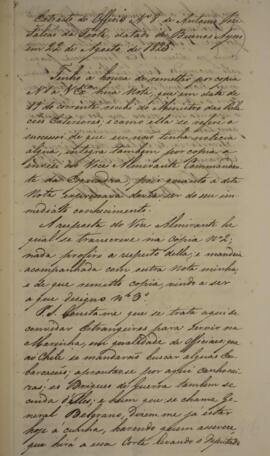 Extracto do Officio Nº 8 de Antonio Jozé
Falcão da Frota, datado de Buenos Ayres
em 22 de Agosto de 1825
Tenho a honra de remetter por copia
a V. Exa. huma Nota, que em data de
19 do corrente recebi do Ministro das Rela-
cões Exteriores, e como ella se refere a
successos de que eu não tinha noticia
alguma, integra tambem por copia a
dirigi ao Vice Almirante Commandante
da Esquadra, por quanto a dita
Nota expressava dever ser do seu im-
mediato conhecimento.
A resposta do Vice Almirante he
qual se transcreve na copia Nº 2,
nada profiro a respeito della, e mandei-a
acompanhada com outra Nota minha,
e de que remetto copia, vindo a ser
a que designo Nº 3º
P.S. Consta-me que se trata aqui de
convidar Estrangeiros para servir na
Marinha, em qualidade de Officiaes, que
ao Chile se mandarão buscar algumas Em-
barcacões, apromtão-se por aqui canhonei-
ras, os Brigues de Guerra tambem se
cuida delles, e hum que se chama Ge-
neral Belgrano, dizem-me já estar
hoje a cunha, havendo quem assevere
que hirá a essa Corte levando o Deputado